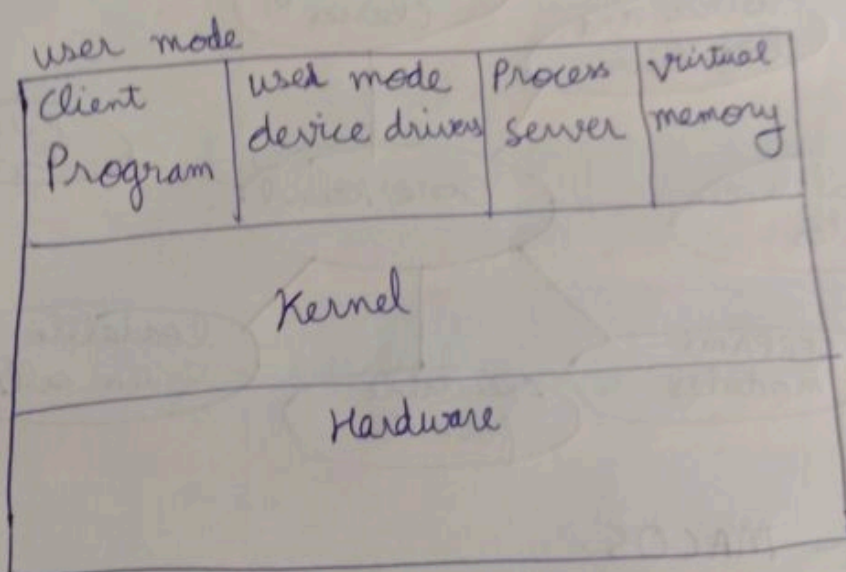 user mode
Client
Program
used mode
device drivers
Process
server
Vristual
memory
Kernel
Hardware
MACOS